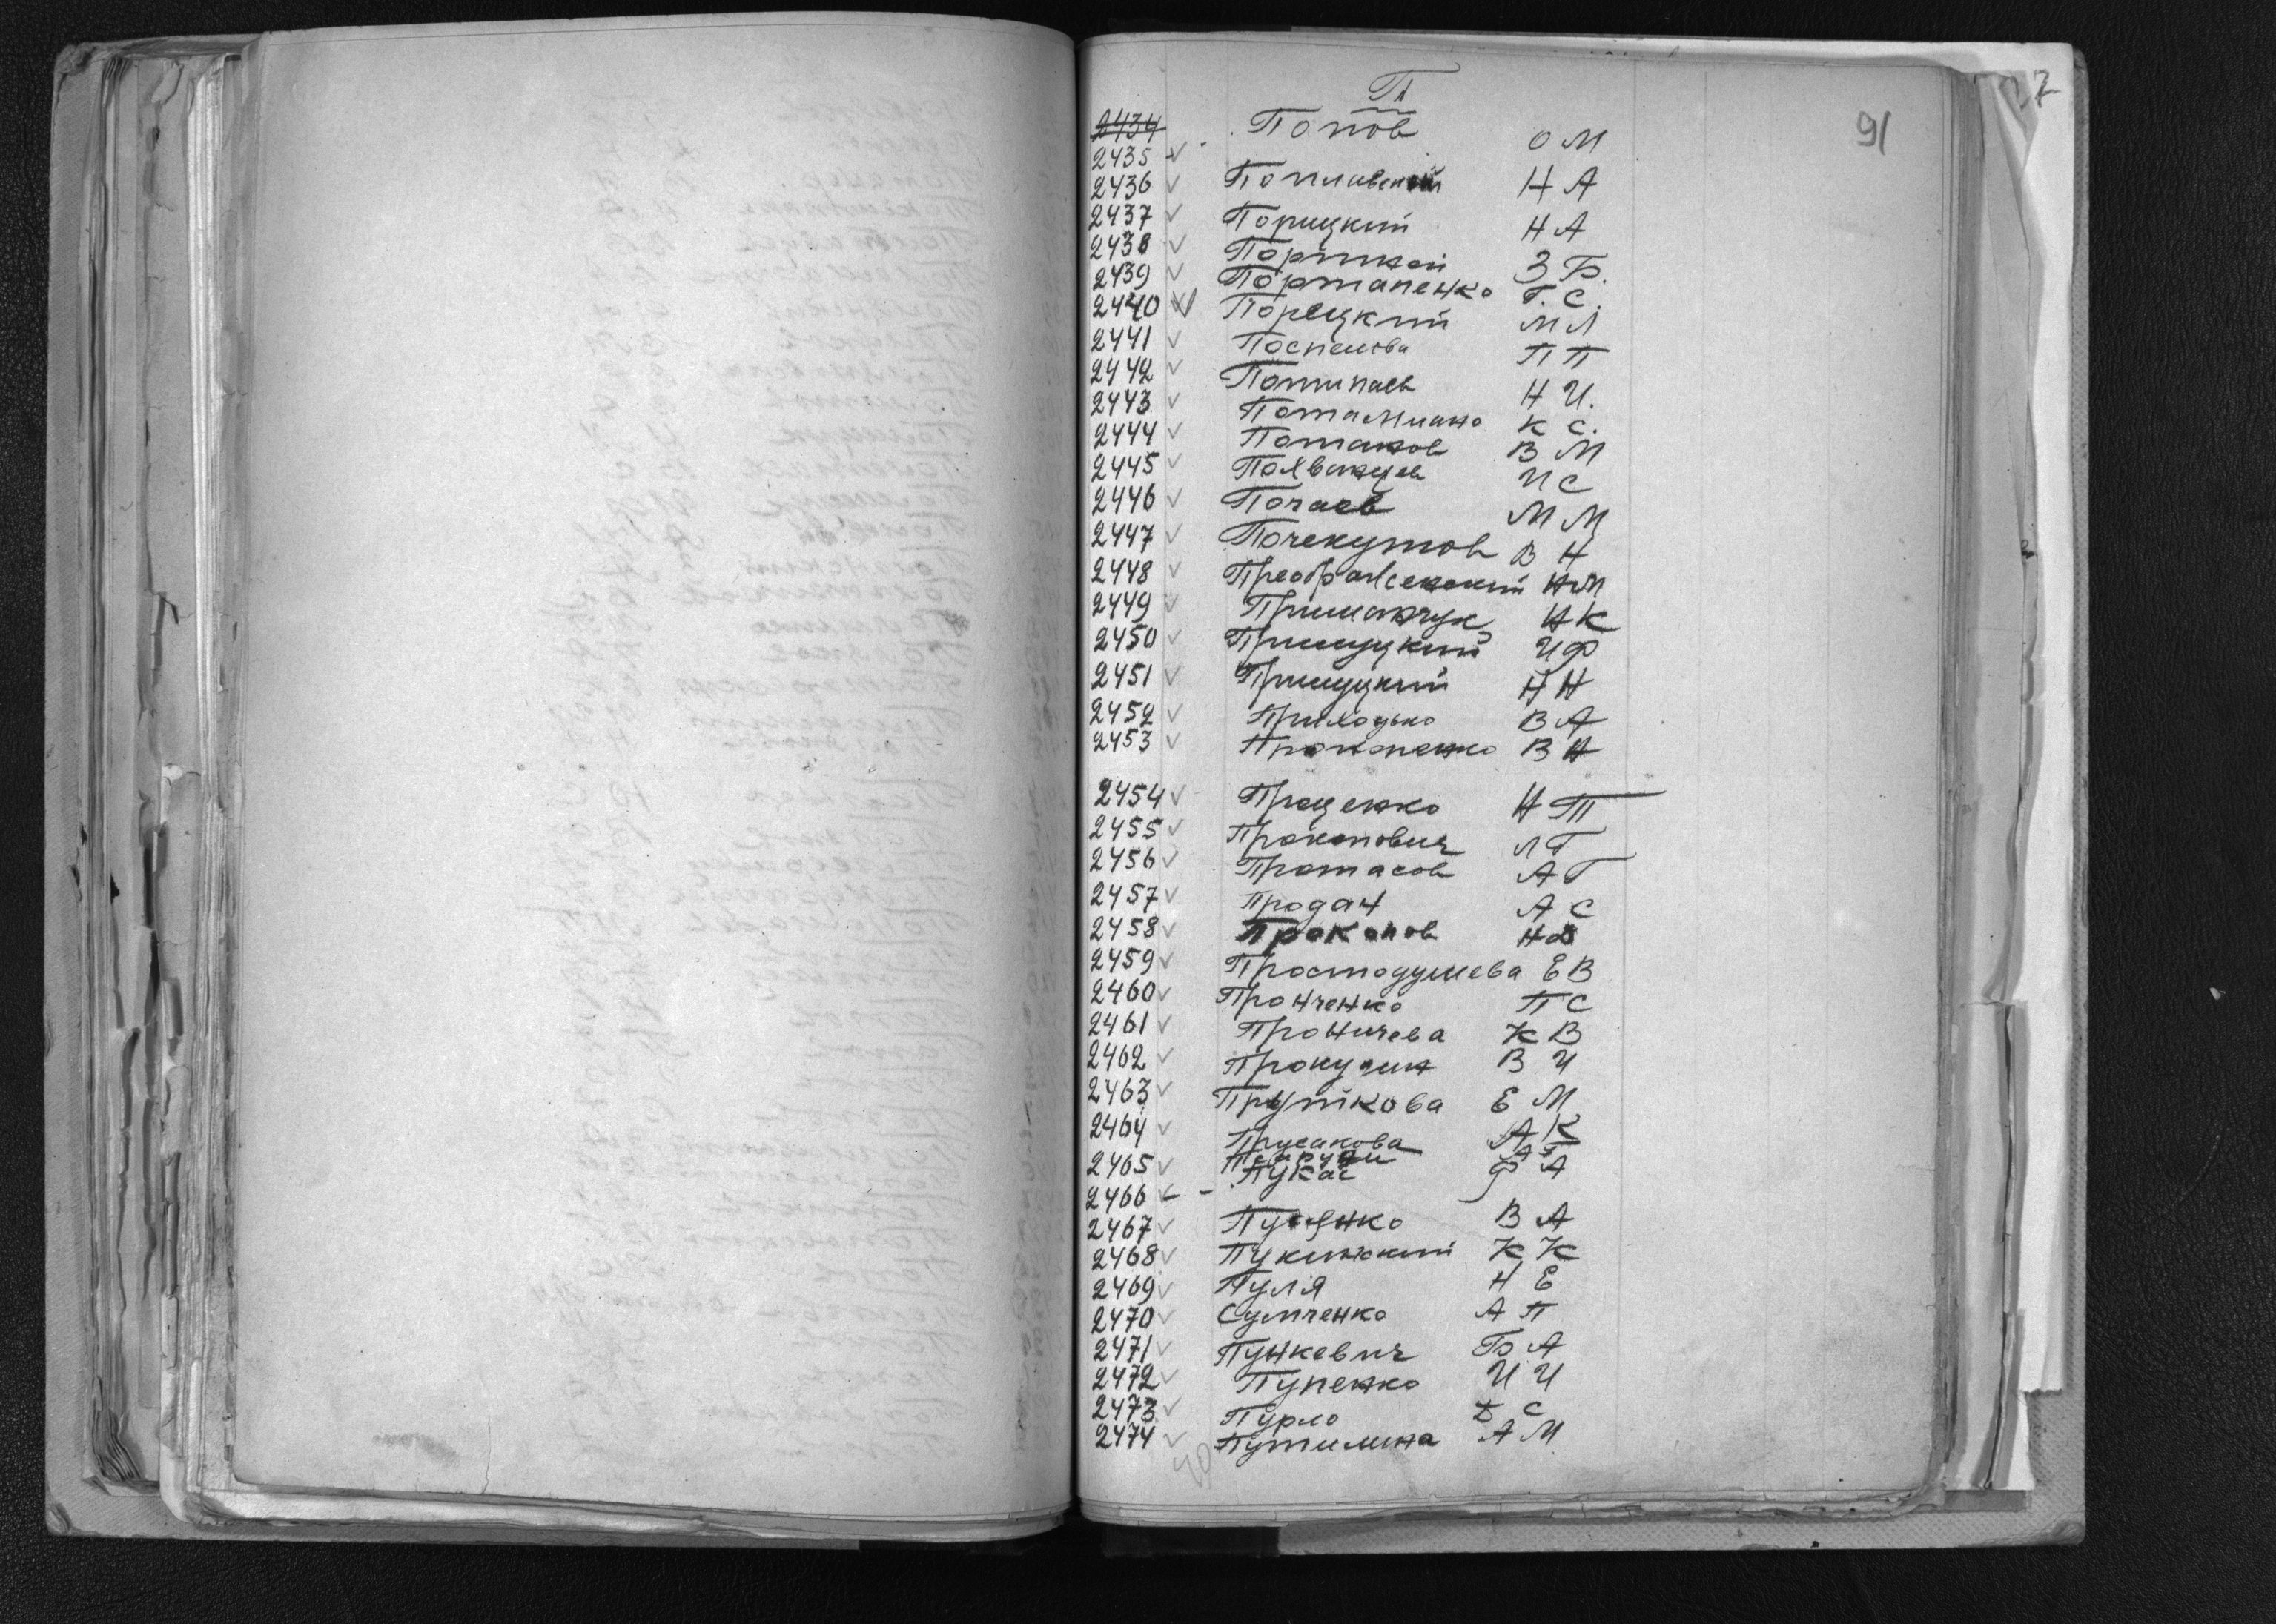 7
91
П
2434 Попов О М
2435
2436 Поплавский Н А
2437 Порицкий Н А
2438 Портной З Б.
2439 Портапенко Г. С.
2440 Порецкий М Л
2441 Поспелова П П
2442 Потипаев Н И.
2443 Потамиано К С.
2444 Потаков В М
2445 Похванцев И С
2446 Почаев М М
2447 Почекутов В Н
2448 Преображенский Н М
2449 Примачук Н К
2450 Прищуцкий И Ф
2451 Прищуцкий Н Н
2452 Приходько В А
2453 Прокопенко В Н
2454 Проценко Н Т
2455 Прокопович Л Г
2456 Протасов А Г
2457 Продан А С
2458 Прокопов Н
2459 Простодушева Е В
2460 Пронченко П С
2461 Проничева К В
2462 Прокудин В И
2463 Пруткова Е М
2464 Прусакова А К
А Г
2465 Пукас Ф А
2466
2467 Пущенко В А
2468 Пукинский К К
2469 Пуля Н Е
2470 Сумченко А П
2471 Пункевич Б А
2472 Пупенко И И
2473 Пурло С
2474 Путилина А М
40